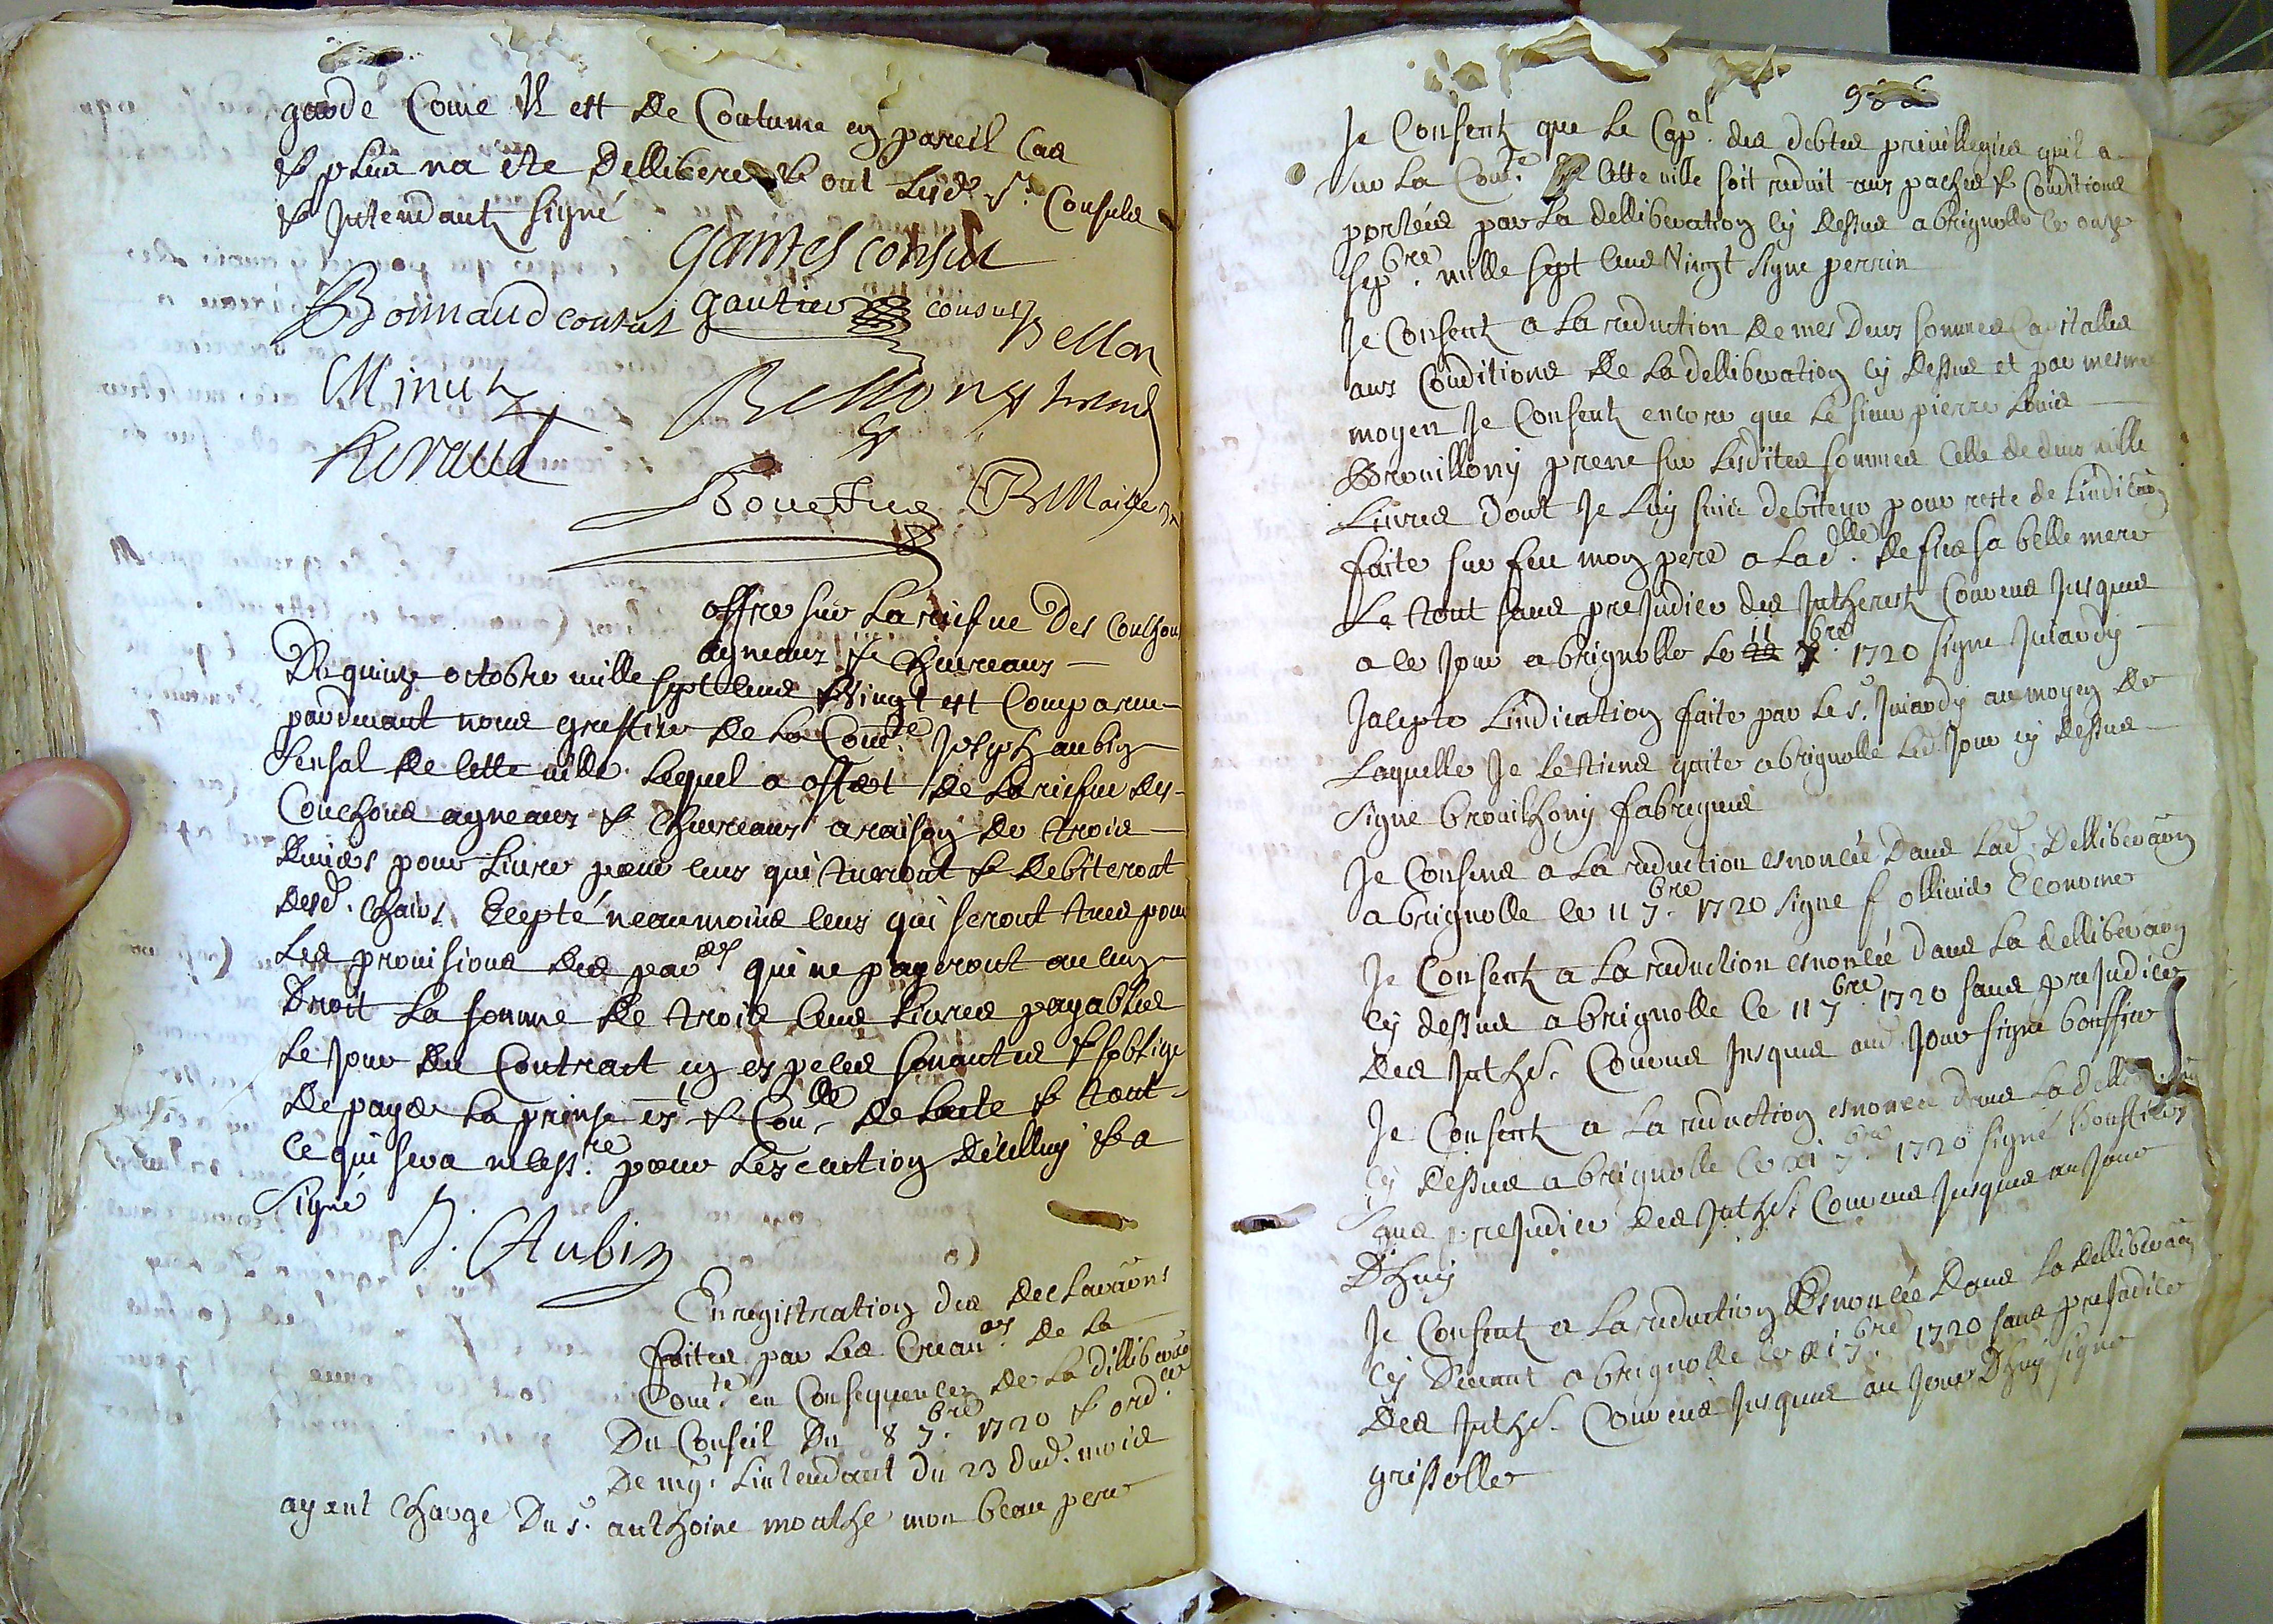 garde Come Il est de Coutume en pareil Cas
& plus na ete delliberé & ont lesd. srs. Consuls
& Intendants signé
garnes consul
Bonnaud consul gautier consul
Bellon
Minut
Bellon
Revaud
Bouesue B Maille
offre sur la reisve des couchons
agneaux & Chevreaux
Du quinze octobre mille sept cens & vingt est Comparu
pardevant nous greffier de la Com.te Joseph aubin
Sensal de cette ville lequel a offert de la reisve des
Couchons agneaux & Chevreaux a raison de trois
deniers pour Livre pour ceux qui tueront & debiteront
desd. chairs Ecepté neaumoins ceus qui seront tues pour
Les provisions des par.ers qui ne payeront aucun
Droit La somme de trois cens Livres payables
Le Jour du Contract en especes sonantes & soblige
de payer La prinse et & Con.lle de Lacte & tout
Ce qui sera necess.re pour Lesecution dicelluy & a
Signé
J. Aubin
Enregistration des declaraons
faites par Les Crean.ers de La
Com.te en Consequence de La delliberaon
Du Conseil Du 8 7.bre 1720 & ord.ce
De mgr. Lintendant du 23 dud. mois
ayant charge Du s. anthoine mouthe mon beau pere
Je Consent que Le Cap.al des debtes privillegies quil a
sur La Com.te de Cette ville soit reduit aux paches & Conditions
portées par La delliberation cy dessus a brignolle ce onze
sep.bre mille sept cens Vingt signe perrin
Je Consent a La reduction de mes deux sommes Capitalles
aux Conditions de La delliberation cy dessus et par mesme
moyen Je Consent encore que Le sieur pierre Louis
Brouillony prene sur Lesdites sommes Celle de deux mille
Livres dont Je Luy suis debiteur pour reste de Lindicaon
faite sur feu mon pere a Lad.lle de fine sa belle mere
Le tout sans prejudice des Intherest Courus Jusques
a ce Jour a brignolle Le 11 7.bre 1720 signe Juiardy
Jacepte Lindication faite par Le s. Juiardy au moyen de
Laquelle Je Le tiens quite a brignolle Led. Jour cy dessus
signe brouilhony fabrigues
Je Consens a La reduction esnoncée dans Lad. Delliberaon
a brignolle Le 11 7.bre 1720 signe f ollivié Econome
Je Consent a La reduction esnoncée dans La delliberaon
cy dessus a brignolle Le 11 7.bre 1720 sans prejudice
des Inths. Courus Jusques aud. Jour signé bouffier
Je Consent a La reduction esnoncée dans La delliberaon
cy dessus a brignolle Le 11 7.bre 1720 signé
sans prejudice des Inths. Courus Jusques au Jour
Dhuy
Je Consent a La reduction Esnoncée dans La delliberaon
cy devant a brignolle Le 11 7.bre 1720 sans prejudice
des Inths. Courus Jusques au Jour Dhuy signé
grissolle